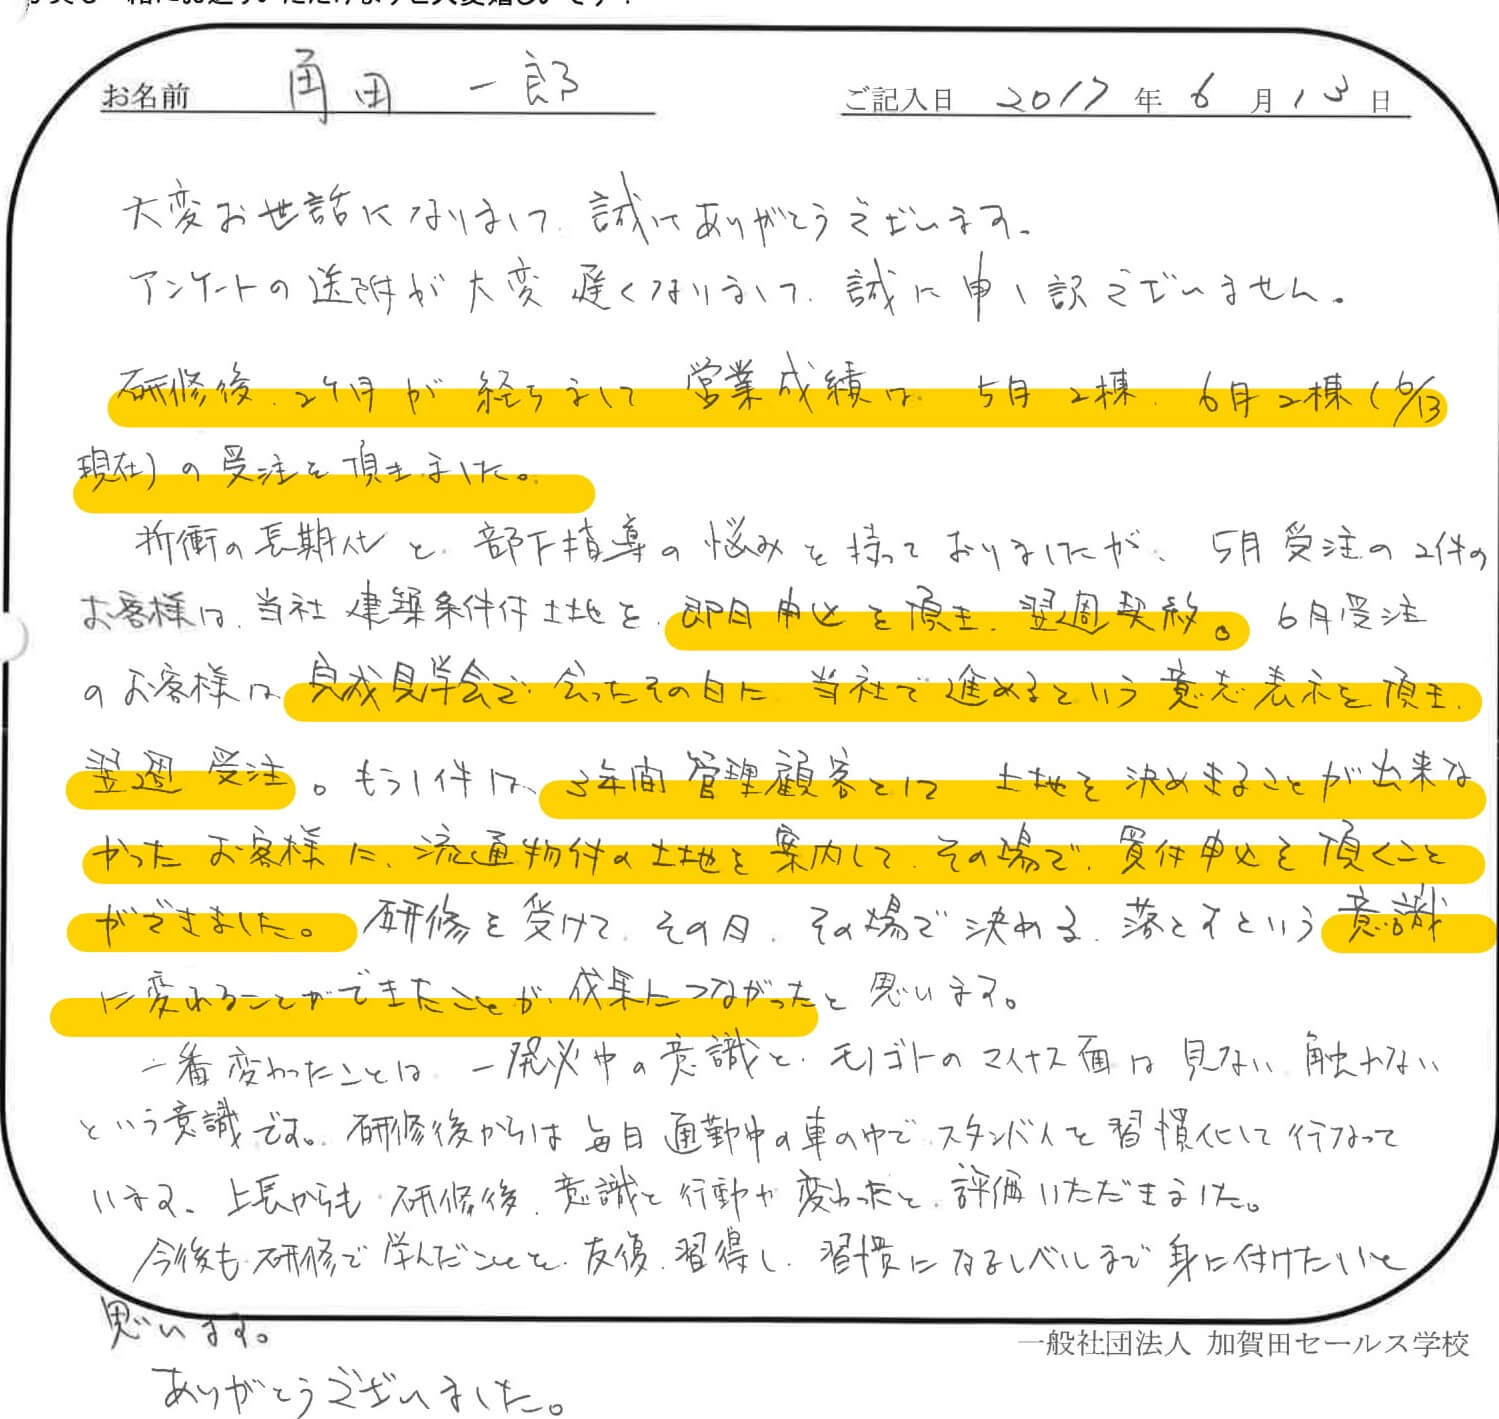 お名前 角田 一郎 ご記入日 2017年6月13日
大変お世話になりまして、誠にありがとうございます。
アンケートの送附が大変遅くなりまして、誠に申し訳ございません。
研修後、2ケ月が経ちまして営業成績は、5月2棟、6月2棟(6/13
現在)の受注を頂きました。
折衝の長期化と、部下指導の悩みを持っておりましたが、5月受注の2件の
お客様は、当社建築条件付土地を、即日申込を頂き、翌週契約。6月受注
のお客様は、完成見学会で会ったその日に、当社で進めるという意志表示を頂き、
翌週受注。もう1件は、3年間管理顧客として土地を決めきることが出来な
かったお客様に、流通物件の土地を案内して、その場で、買付申込を頂くこと
ができました。研修を受けて、その日、その場で決める、落とすという意識
に変れることができたことが、成果につながったと思います。
一番変わったことは、一発必中の意識と、モノゴトのマイナス面は見ない、触れない
という意識です。研修後からは毎日通勤中の車の中でスタンバイを習慣化して行なって
います。上長からも、研修後、意識と行動が変わったと、評価いただきました。
今後も、研修で学んだことを、反復、習得し、習慣になるレベルまで身に付けたいと
思います。
一般社団法人 加賀田セールス学校
ありがとうございました。